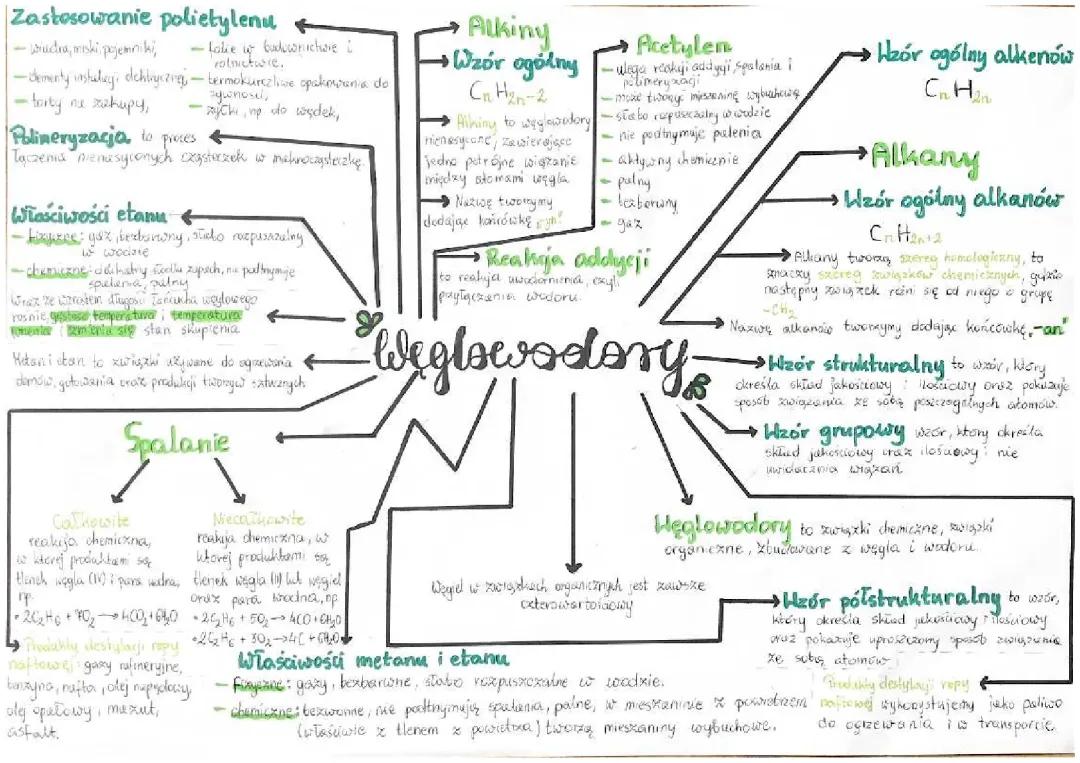 Zastosowanie polietylenu
– wiadra, miski, pojemniki,
– elementy instalacji elektrycznej,
– torby na zakupy,
– folie w budownictwie i
rolnictwie.
– termokurczliwe opakowania do
żywności,
– żyłki, np. do wędek,
Polimeryzacja to proces
łączenia nienasyconych cząsteczek w makrocząsteczkę.
Właściwości etanu
– fizyczne: gaz, bezbarwny, słabo rozpuszczalny
w wodzie
– chemiczne: delikatny słodki zapach, nie podtrzymuje
spalania, palny
Wraz ze wzrostem długości łańcucha węglowego
rośnie, gęstość temperatura i temperatura
wrzenia i zmienia się stan skupienia
Metan i etan to związki używane do ogrzewania
domów, gotowania oraz produkcji tworzyw sztucznych
Alkiny
Wzór ogólny
CnH2n-2
Alkiny to węglowodory
nienasycone, zawierające
jedno potrójne wiązanie
między atomami węgla
Nazwę tworzymy
dodając końcówkę „yn"
Acetylen
– ulega reakcji addycji, spalania i
polimeryzacji
– może tworzyć mieszaninę wybuchową
– słabo rozpuszczalny w wodzie
– nie podtrzymuje palenia
– aktywny chemicznie
– palny
– bezbarwny
– gaz
Reakcja addycji
to reakcja uwodornienia, czyli
przyłączania wodoru.
Wzór ogólny alkenów
CnH2n
Alkany
Wzór ogólny alkanów
CnH2n+2
Alkany tworzą szereg homologiczny, to
znaczy szereg związków chemicznych, gdzie
następny związek różni się od niego o grupę
-CH2
Nazwę alkanów tworzymy dodając końcówkę „-an"
Węglowodory
Wzór strukturalny to wzór, który
określa skład jakościowy i ilościowy oraz pokazuje
sposób związania ze sobą poszczególnych atomów.
Wzór grupowy wzór, który określa
skład jakościowy oraz ilościowy i nie
uwidacznia wiązań.
Węglowodory to związki chemiczne, związki
organiczne, zbudowane z węgla i wodoru.
Węgiel w związkach organicznych jest zawsze
czterowartościowy
Wzór półstrukturalny to wzór,
który określa skład jakościowy i ilościowy
oraz pokazuje uproszczony sposób związania
ze sobą atomów
Produkty destylacji ropy
naftowej wykorzystujemy jako paliwo
do ogrzewania i w transporcie.
Spalanie
Całkowite
reakcja chemiczna,
w której produktami są
tlenek węgla (IV) i para wodna,
np.
• 2C2H6 + 7O2 → 4CO2 + 6H2O
Niecałkowite
reakcja chemiczna, w
której produktami są
tlenek węgla (II) lub węgiel
oraz para wodna, np
• 2C2H6 + 5O2 → 4CO + 6H2O
• 2C2H6 + 3O2 → 4C + 6H2O
Produkty destylacji ropy
naftowej: gazy rafineryjne,
benzyna, nafta, olej napędowy,
olej opałowy, mazut,
asfalt.
Właściwości metanu i etanu
– fizyczne: gazy, bezbarwne, słabo rozpuszczalne w wodzie.
– chemiczne: bezwonne, nie podtrzymują spalania, palne, w mieszaninie z powietrzem
(właściwie z tlenem z powietrza) tworzą mieszaniny wybuchowe.